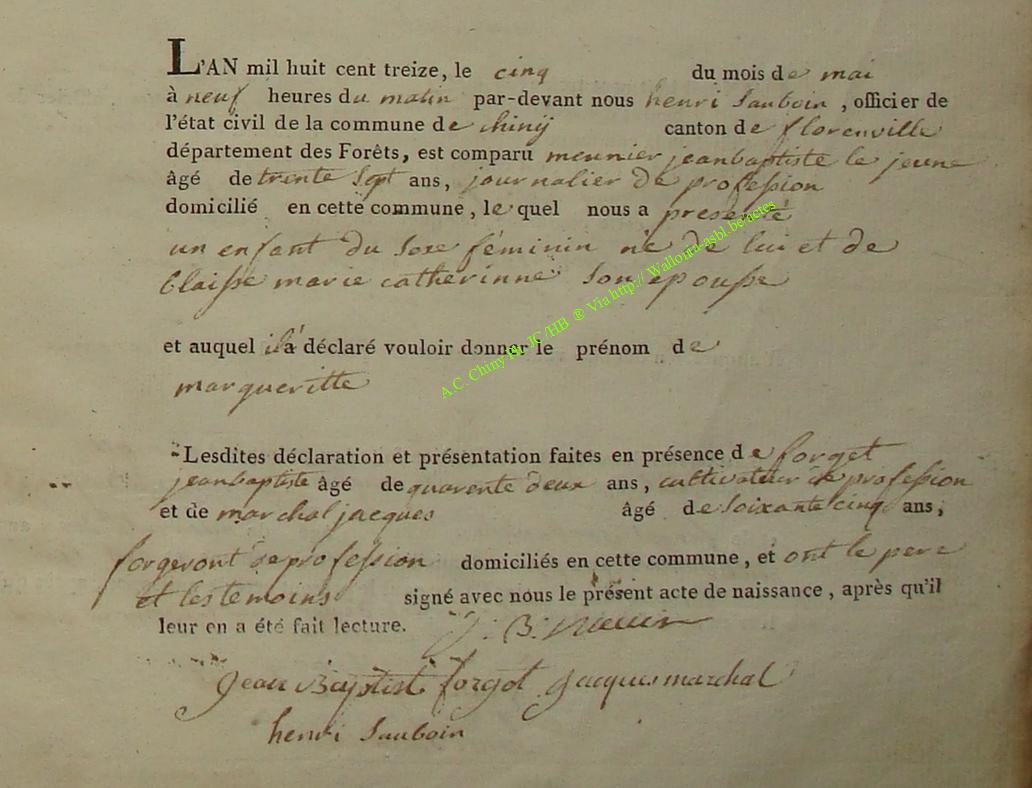 L'AN mil huit cent treize, le cinq du mois de mai
à neuf heures du matin par-devant nous henri Sauboin, officier de
l'état civil de la commune de chinÿ canton de florenville
département des Forêts, est comparu meunier jeanbaptiste le jeune
âgé de trente Sept ans, journalier de profession
domicilié en cette commune, le quel nous a presenté
un enfant du Sexe féminin né de lui et de
blaisse marie catherinne Son epousse
et auquel il a déclaré vouloir donner le prénom de
margueritte
Lesdites déclaration et présentation faites en présence de forget
jeanbaptiste âgé de quarente deux ans, cultivateur de profession
et de marchal jacques âgé de Soixante cinq ans,
forgeront de profession domiciliés en cette commune, et ont le pere
et les temoins signé avec nous le présent acte de naissance, après qu'il
leur en a été fait lecture. J: B:
Jean Baptist forget Jacques marchal
henri Sauboin
A.C. Chiny Ph. JC /HB ® Via http:// Wallonia-asbl.be/actes